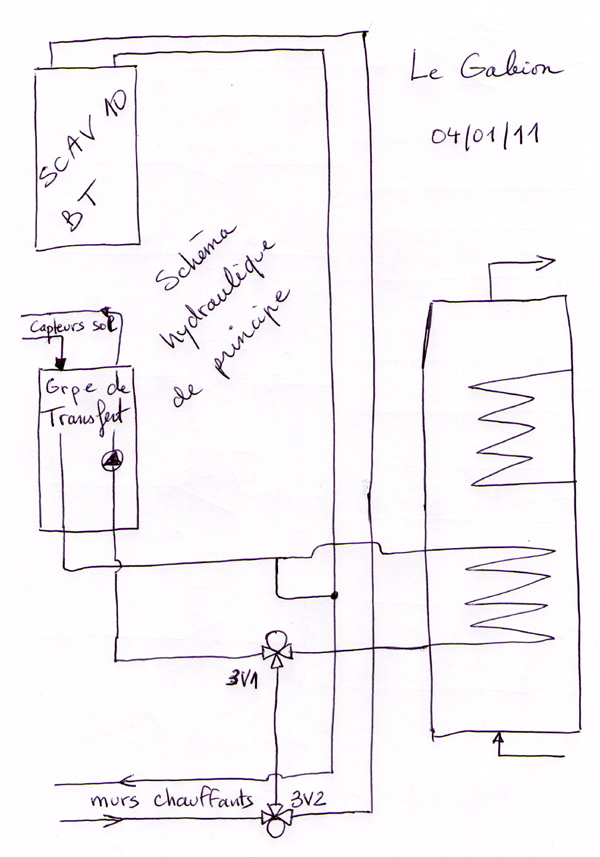 Le Gabion
04/01/11
SCAV 10
BT
Schéma
hydraulique
de principe
Capteurs sol
Grpe de
Transfert
3V1
murs chauffants
3V2